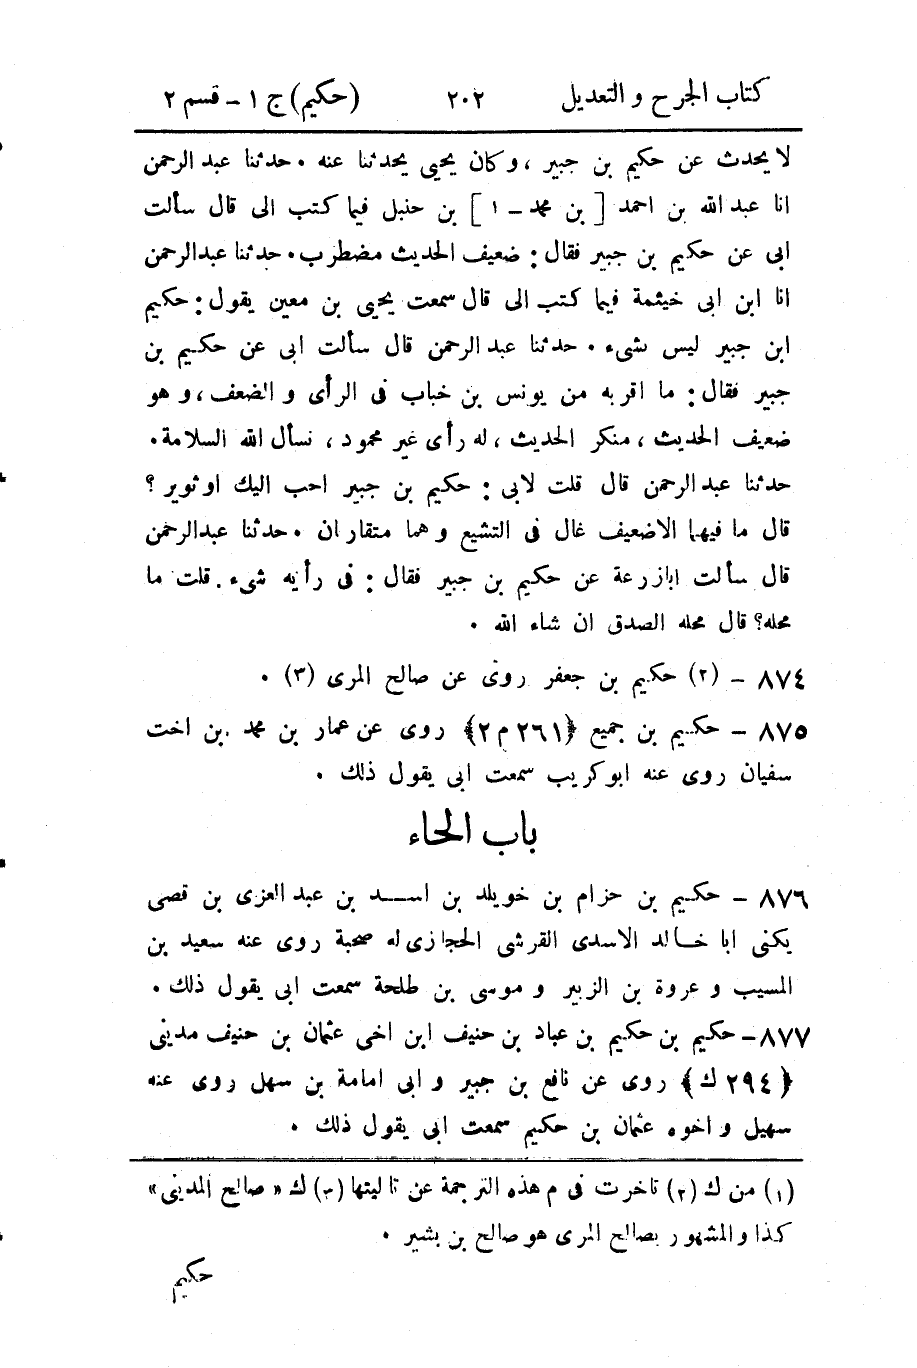 كتاب الجرح والتعديل ٢٠٢ (حكيم) ج ١ - قسم ٢
لا يحدث عن حكيم بن جبير ، وكان يحيى يحدثنا عنه . حدثنا عبد الرحمن
انا عبد الله بن احمد [ بن محمد - ١ ] بن حنبل فيما كتب الى قال سألت
ابى عن حكيم بن جبير فقال : ضعيف الحديث مضطرب . حدثنا عبد الرحمن
انا ابن ابى خيثمة فيما كتب الى قال سمعت يحيى بن معين يقول : حكيم
ابن جبير ليس بشىء . حدثنا عبد الرحمن قال سألت ابى عن حكيم بن
جبير فقال : ما اقربه من يونس بن خباب فى الرأى و الضعف ، و هو
ضعيف الحديث ، منكر الحديث ، له رأى غير محمود ، نسأل الله السلامة .
حدثنا عبد الرحمن قال قلت لابى : حكيم بن جبير احب اليك او ثوير ؟
قال ما فيهما الا ضعيف غال فى التشيع و هما متقاربان . حدثنا عبد الرحمن
قال سألت ابا زرعة عن حكيم بن جبير فقال : فى رأيه شىء . قلت ما
محله ؟ قال محله الصدق ان شاء الله .
٨٧٤ - (٢) حكيم بن جعفر روى عن صالح المرى (٣) .
٨٧٥ - حكيم بن جميع ﴿٢٦١ م ٢﴾ روى عن عمار بن محمد بن اخت
سفيان روى عنه ابو كريب سمعت ابى يقول ذلك .
باب الحاء
٨٧٦ - حكيم بن حزام بن خويلد بن اسد بن عبد العزى بن قصى
يكنى ابا خالد الاسدى القرشى الحجازى له صحبة روى عنه سعيد بن
المسيب و عروة بن الزبير و موسى بن طلحة سمعت ابى يقول ذلك .
٨٧٧ - حكيم بن حكيم بن عباد بن حنيف ابن اخى عثمان بن حنيف مدينى
﴿ ٢٩٤ ك ﴾ روى عن نافع بن جبير و ابى امامة بن سهل روى عنه
سهيل و اخوه عثمان بن حكيم سمعت ابى يقول ذلك .
(١) من ك (٢) تاخرت فى م هذه الترجمة عن تاليتها (٣) ك « صالح المدينى »
كذا و المشهور بصالح المرى هو صالح بن بشير .
حكيم